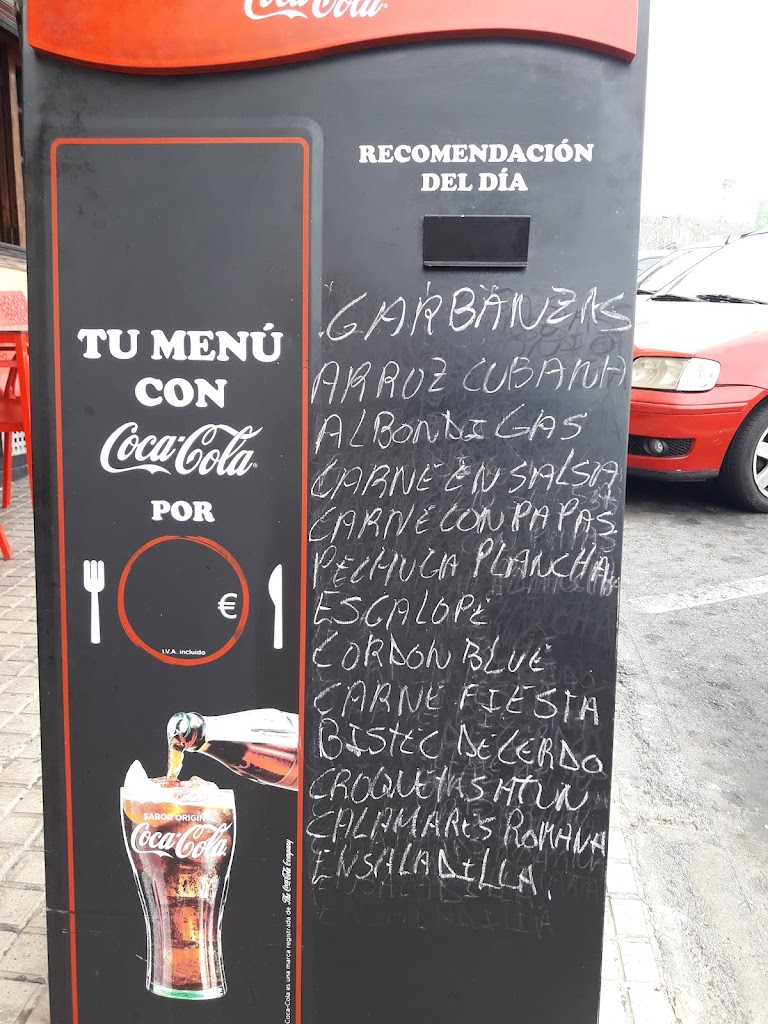 Coca-Cola
RECOMENDACIÓN
DEL DÍA
TU MENÚ
CON
Coca-Cola
POR
€
I.V.A. incluido
SABOR ORIGINAL
Coca-Cola
Coca-Cola es una marca registrada de The Coca-Cola Company
GARBANZAS
ARROZ CUBANA
ALBONDIGAS
CARNE EN SALSA
CARNE CON PAPAS
PECHUGA PLANCHA
ESCALOPE
CORDON BLUE
CARNE FIESTA
BISTEC DE CERDO
CROQUETAS ATUN
CALAMARES ROMANA
ENSALADILLA.